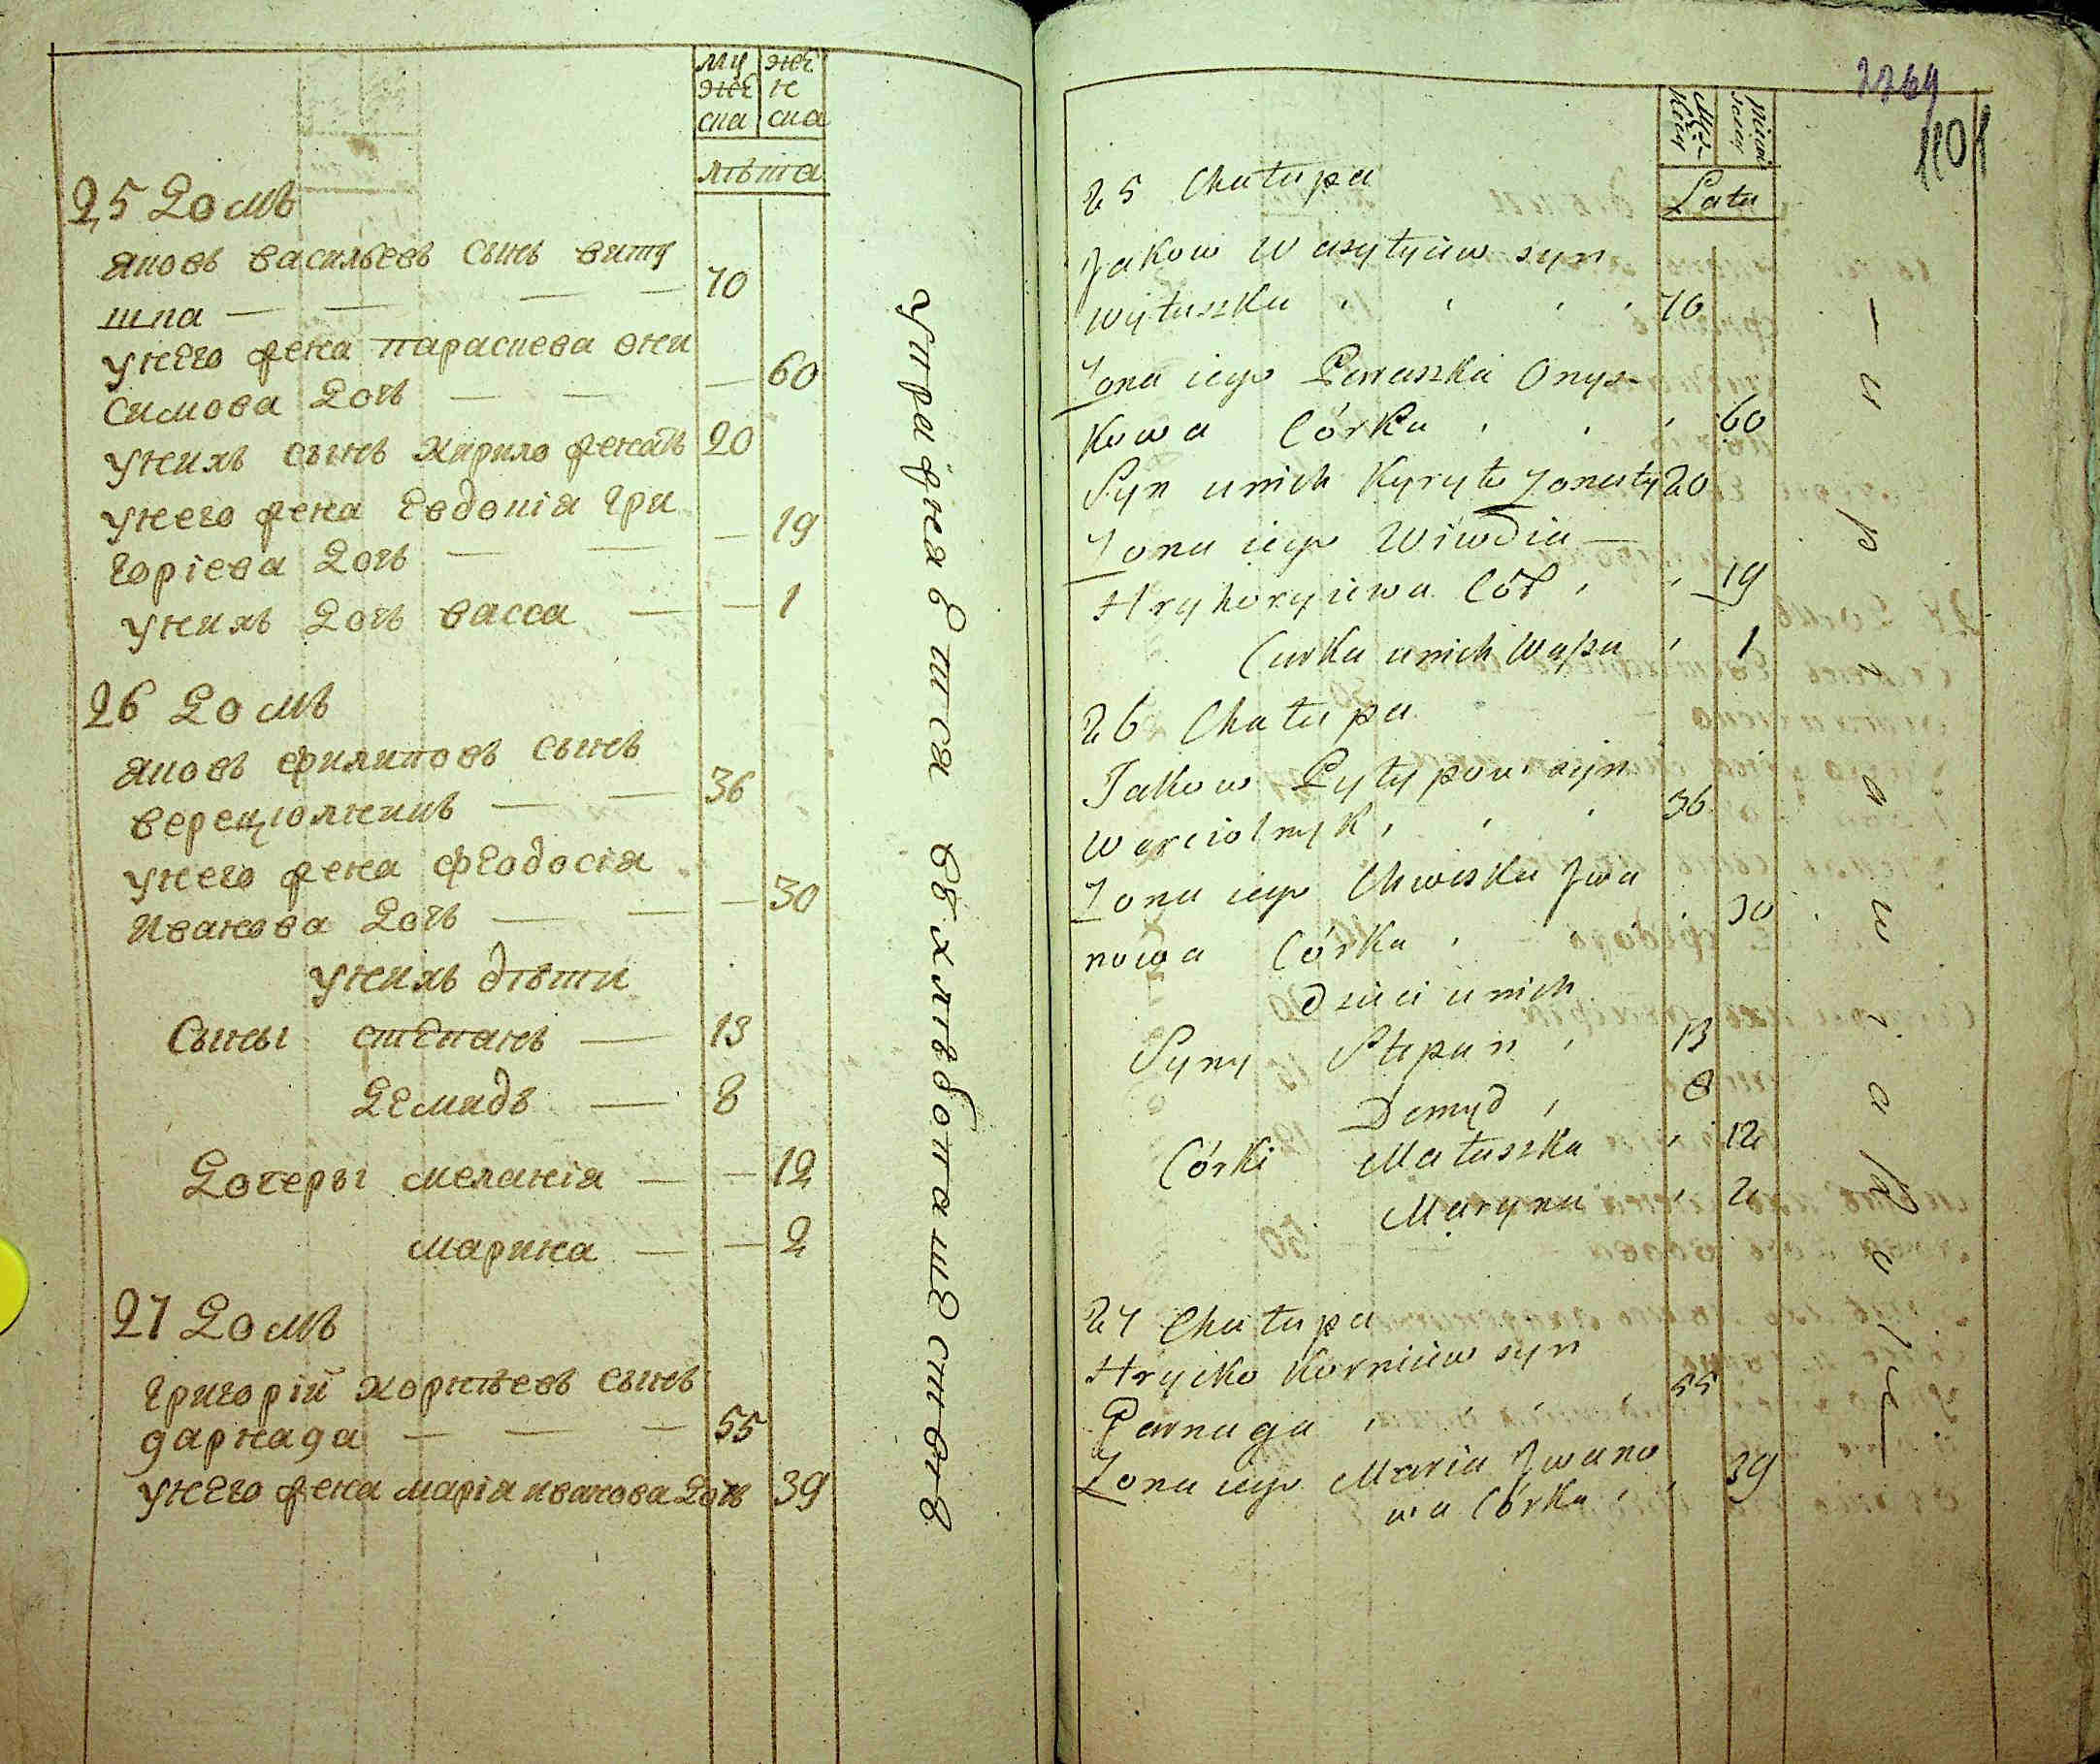 му
же
ска
жеч
н
ска
лѣта
25 Домъ
Яковъ Васильевъ сынъ виту
шка — — — — 70
у него жена параскева они
симова дочъ — — — 60
у нихъ сынъ Кирило женатъ 20
у него жена Евдокія Гри
горіева дочъ — — — 19
у нихъ дочъ васса — — 1
26 Домъ
Яковъ филиповъ сынъ
верещюлникъ — — 36
у него жена феодосія
Иванова дочъ — — — 30
у нихъ дѣти
Сыны степанъ — 13
Демидъ — 8
Дочеры меланія — — 12
марина — — 2
27 Домъ
Григорій Корнѣевъ сынъ
— — — 55
у него жена марія иванова дочъ 39
упражняется въ хлѣбопашествѣ
2764
1101
Męz-
kiey
Lata
25 Chałupa
Jakow Wasylyiów syn
Wytuszka 70
Zona iego Paraszka Onys-
kowa Córka 60
Syn u nich Kyryło Zonaty 20
Zona iego Wiwdia —
Hryhoryiewa Cór 19
Curka u nich Wassa 1
26 Chałupa
Jakow Pyłypow syn
Werciolnyk 36
Zona iego Chweska Jwa
nowa Córka 30
Dzieci u nich
Syny Stepan 13
Demyd 8
Córki Małaszka 12
Maryna 2
27 Chałupa
Hryćko Korniiów syn
Parnaga 55
Zona iego Maria Jwano
wa Córka 39